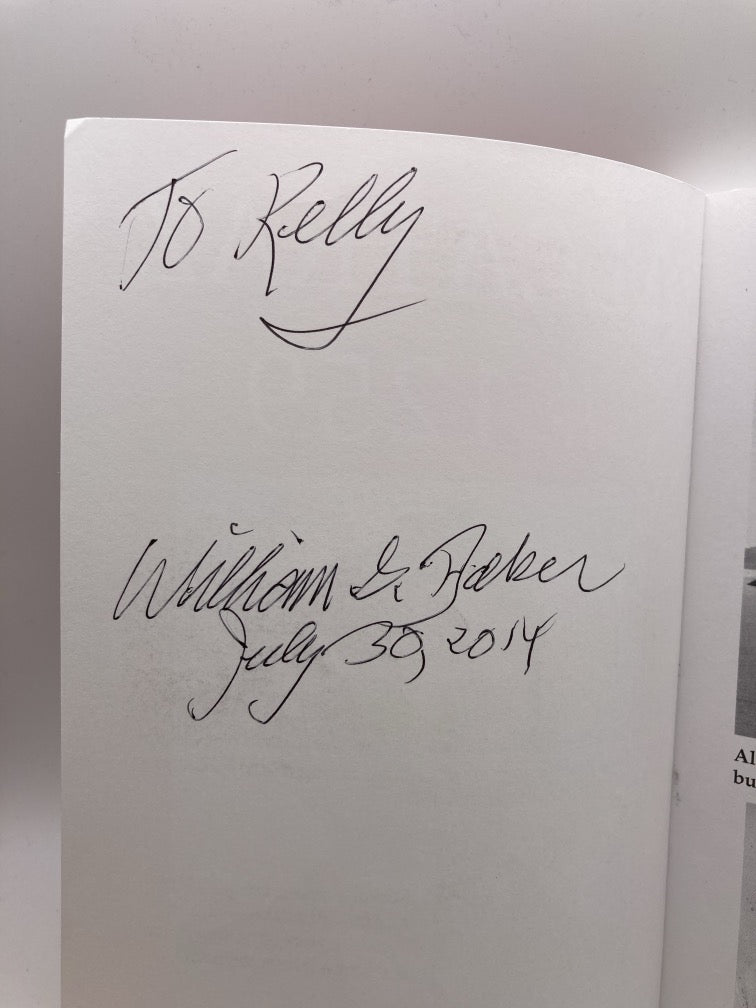 To Kelly
William G. Baker
July 30, 2014
Al
bu